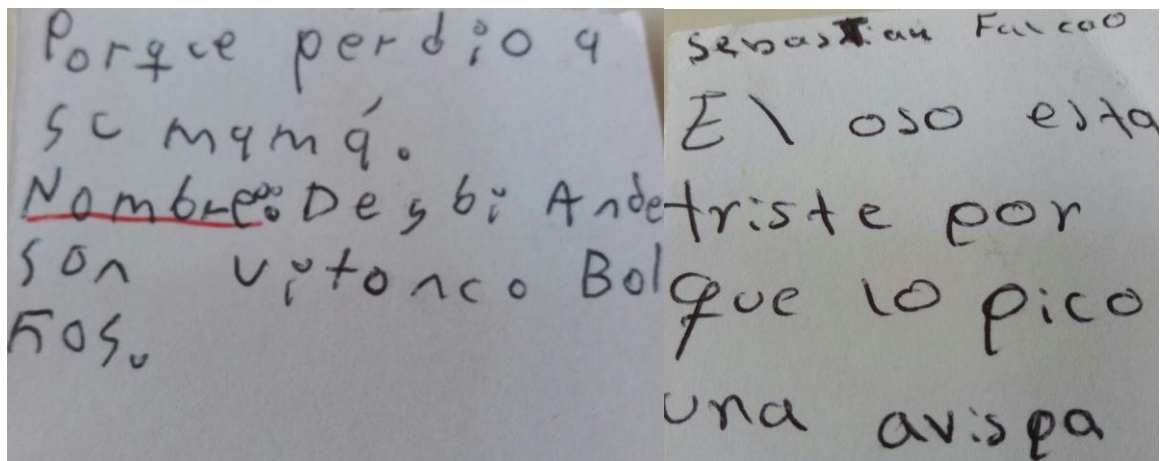 Porque perdio a
su mamá.
Nombre: Desbi Ande
son vitonco Bol
ños.
Sebastian Falcao
El oso esta
triste por
que lo pico
una avispa